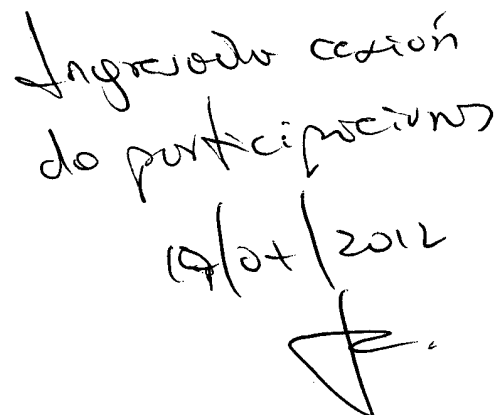 Ingresado cesión
de participaciones
19/07/2012